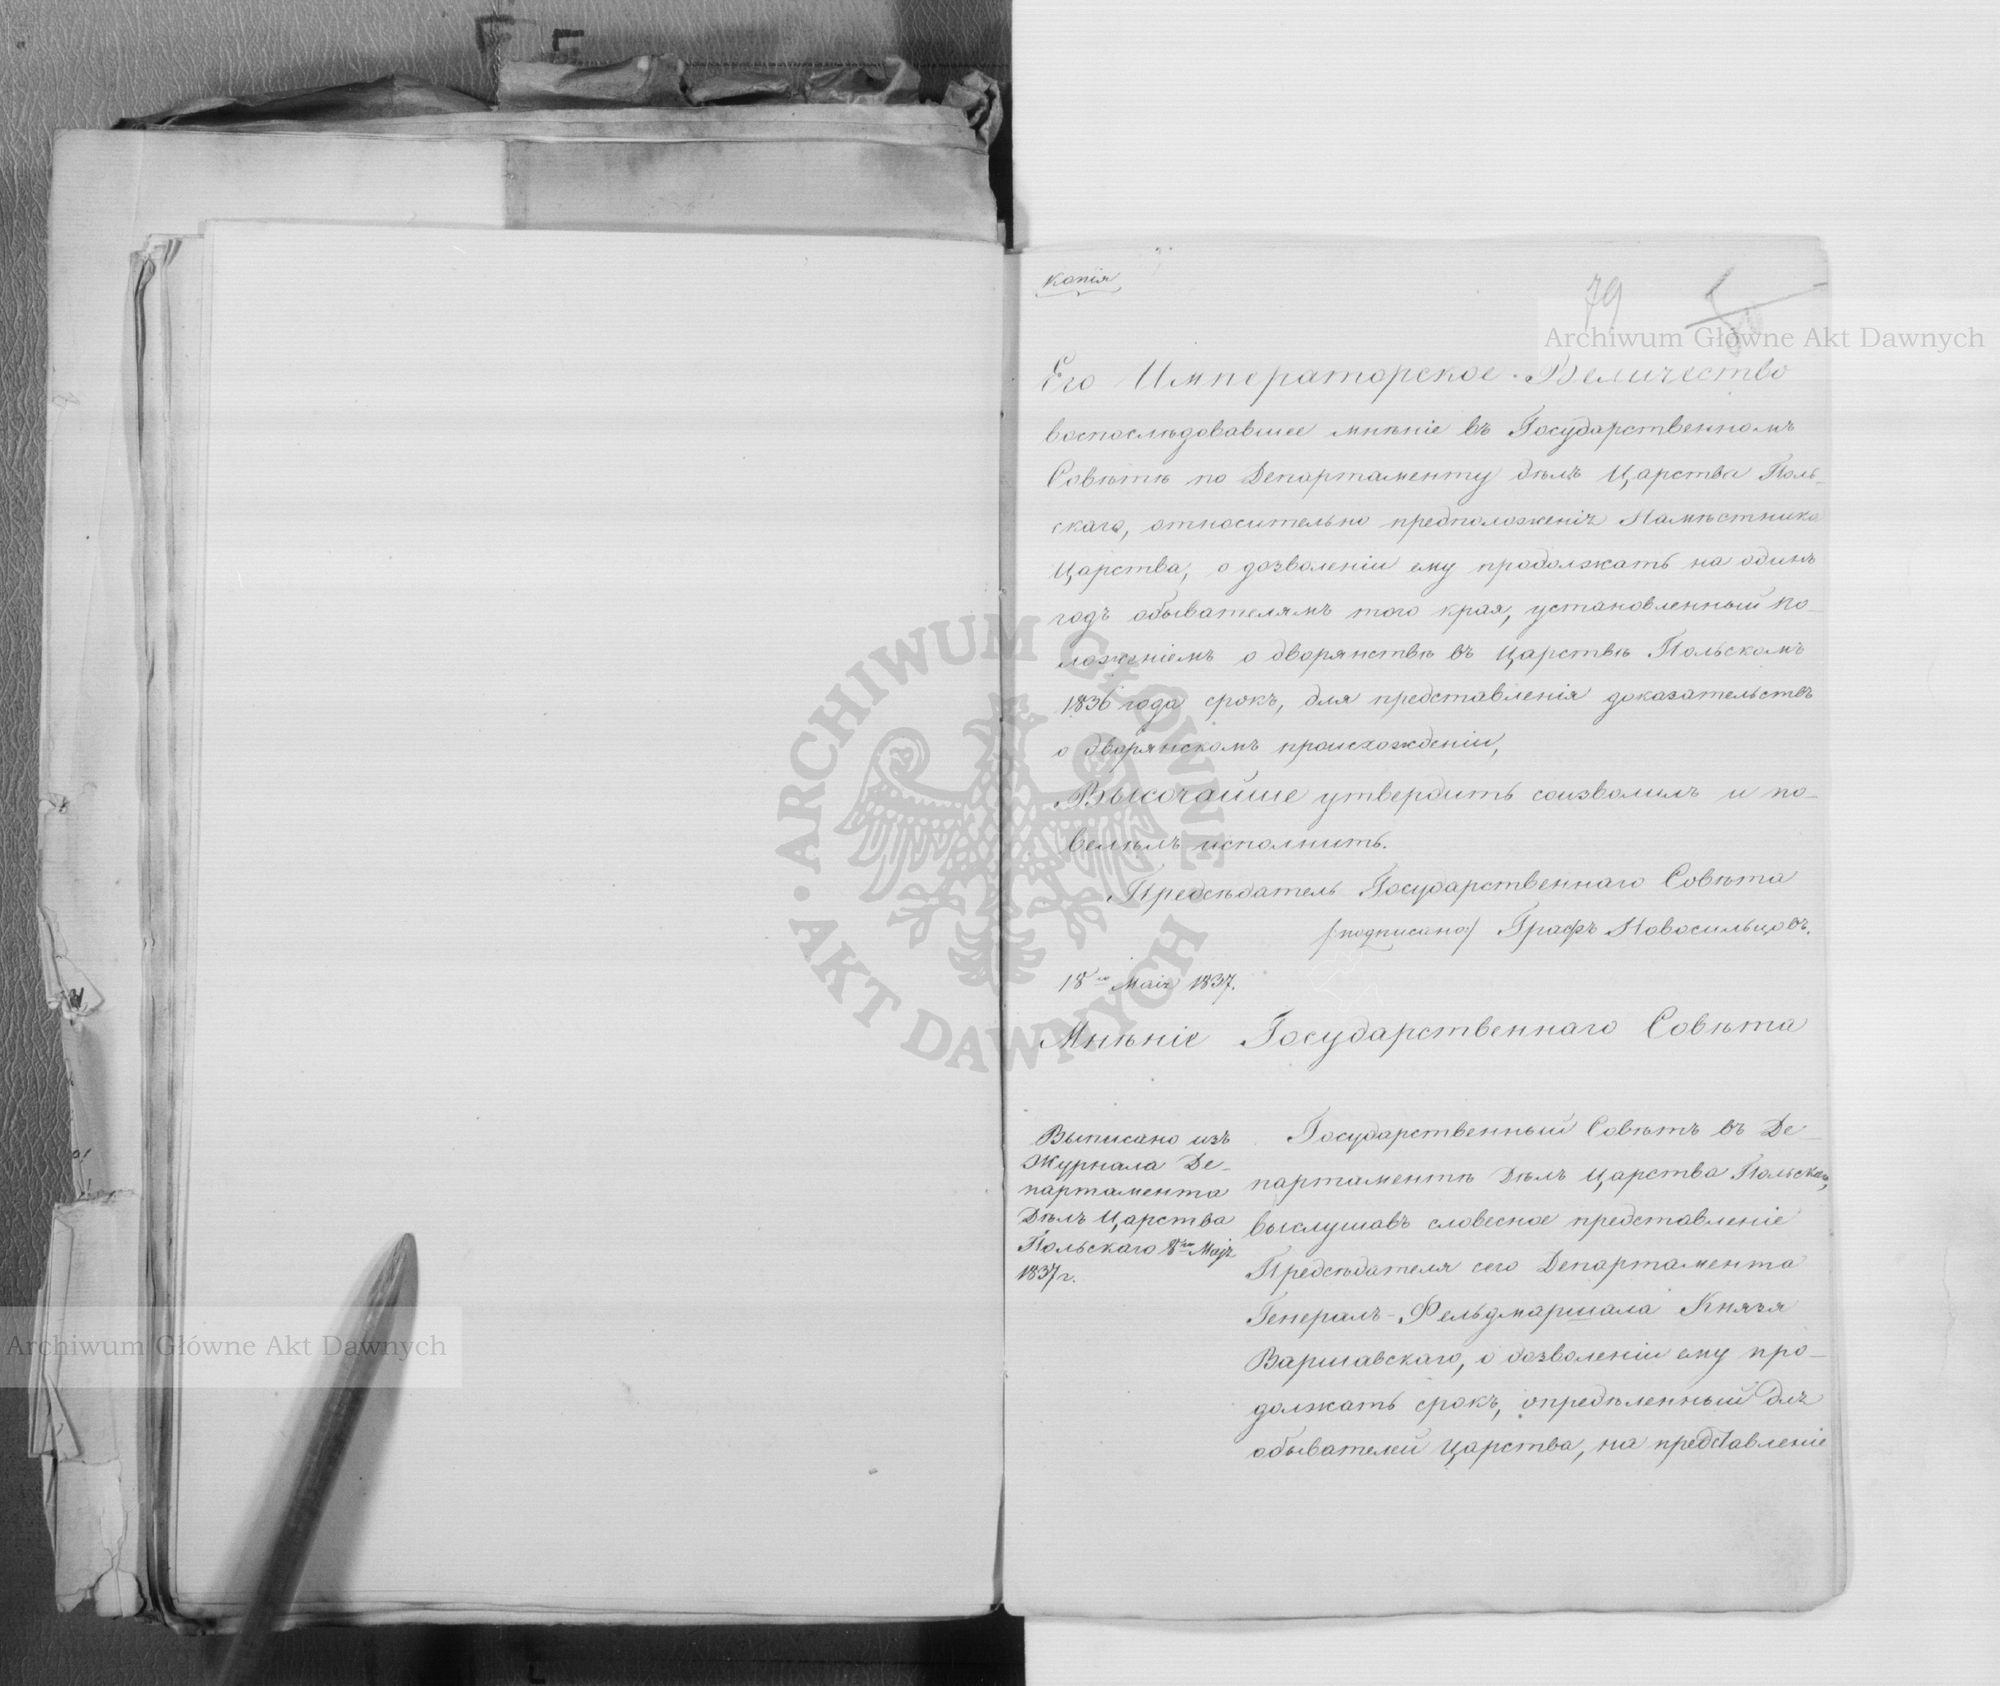 копія
79
Его Императорское Величество
воспослѣдовавшее мнѣніе въ Государственномъ
Совѣтѣ по Департаменту дѣлъ Царства Поль-
скаго, относительно предположенія Намѣстника
Царства, о дозволеніи ему продолжать на одинъ
годъ обывателямъ того края, установленный по-
ложеніемъ о дворянствѣ въ Царствѣ Польскомъ
1836 года срокъ, для представленія доказательствъ
о дворянскомъ происхожденіи,
Высочайше утвердить соизволилъ и по-
велѣлъ исполнить.
Предсѣдатель Государственнаго Совѣта
/:подписано:/ Графъ Новосильцовъ.
18го Маія 1837.
Мнѣніе Государственнаго Совѣта
Выписано изъ
Журнала Де-
партамента
Дѣлъ Царства
Польскаго 8го Маія
1837 г.
Государственный Совѣтъ въ Де-
партаментѣ Дѣлъ Царства Польскаго,
выслушавъ словесное представленіе
Предсѣдателя сего Департамента
Генералъ-Фельдмаршала Князя
Варшавскаго, о дозволеніи ему про-
должать срокъ, опредѣленный для
обывателей Царства, на представленіе
Archiwum Główne Akt Dawnych
Archiwum Główne Akt Dawnych
ARCHIWUM GŁÓWNE AKT DAWNYCH